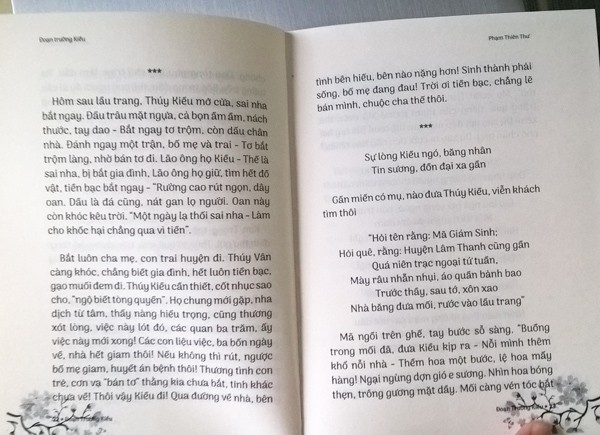 Đoạn trường Kiều
***
Hôm sau lầu trang, Thúy Kiều mở cửa, sai nha
bắt ngay. Đầu trâu mặt ngựa, cả bọn ầm ầm, nách
thước, tay dao - Bắt ngay tơ trộm, còn dấu chân
nhà. Đánh ngay một trận, bố mẹ và trai - Tơ bắt
trộm làng, nhờ bán tơ đi. Lão ông họ Kiều - Thế là
sai nha, bị bắt gia đình, Lão ông họ giữ, tìm hết đồ
vật, tiền bạc bắt ngay - "Rường cao rút ngọn, dây
oan. Dẫu là đá cũng, nát gan lọ người. Oan này
còn khóc kêu trời. "Một ngày lạ thối sai nha - Làm
cho khốc hại chẳng qua vì tiền".
Bắt luôn cha mẹ, con trai huyện đi. Thúy Vân
càng khóc, chẳng biết gia đình, hết luôn tiền bạc,
gạo muối đem đi. Thúy Kiều cần thiết, cốt nhục sao
cho, "ngộ biết tòng quyền". Họ chung mới gặp, nha
dịch từ tâm, thấy nàng hiếu trọng, cũng thương
xót lòng, việc này lót đó, các quan ba trăm, ấy
việc này mới xong! Các con liệu việc, ba bốn ngày
về, nhà hết giam thôi! Nếu không thì rút, ngược
bố mẹ giam, huyết án bệnh thôi! Thương tình con
trẻ, cơn vạ "bán tơ" thằng kia chưa bắt, tình khác
chưa về! Thôi vậy Kiều đi! Qua đường về nhà, bên
Đoạn trường Kiều
Phạm Thiên Thư
tình bên hiếu, bên nào nặng hơn! Sinh thành phải
sống, bố mẹ đang đau! Trời ơi tiền bạc, chẳng lẽ
bán mình, chuộc cha thế thôi.
***
Sự lòng Kiều ngỏ, băng nhân
Tin sương, đồn đại xa gần
Gần miền có mụ, nào đưa Thúy Kiều, viễn khách
tìm thôi
"Hỏi tên rằng: Mã Giám Sinh;
Hỏi quê, rằng: Huyện Lâm Thanh cũng gần
Quá niên trạc ngoại tứ tuần,
Mày râu nhẵn nhụi, áo quần bảnh bao
Trước thầy, sau tớ, xôn xao
Nhà băng đưa mối, rước vào lầu trang"
Mã ngồi trên ghế, tay bước sỗ sàng. "Buồng
trong mối đã, đưa Kiều kịp ra - Nỗi mình thêm
khổ nỗi nhà - Thềm hoa một bước, lệ hoa mấy
hàng! Ngại ngùng dợn gió e sương. Nhìn hoa bóng
thẹn, trông gương mặt dầy. Mối càng vén tóc bắt
Đoạn Trường Kiều